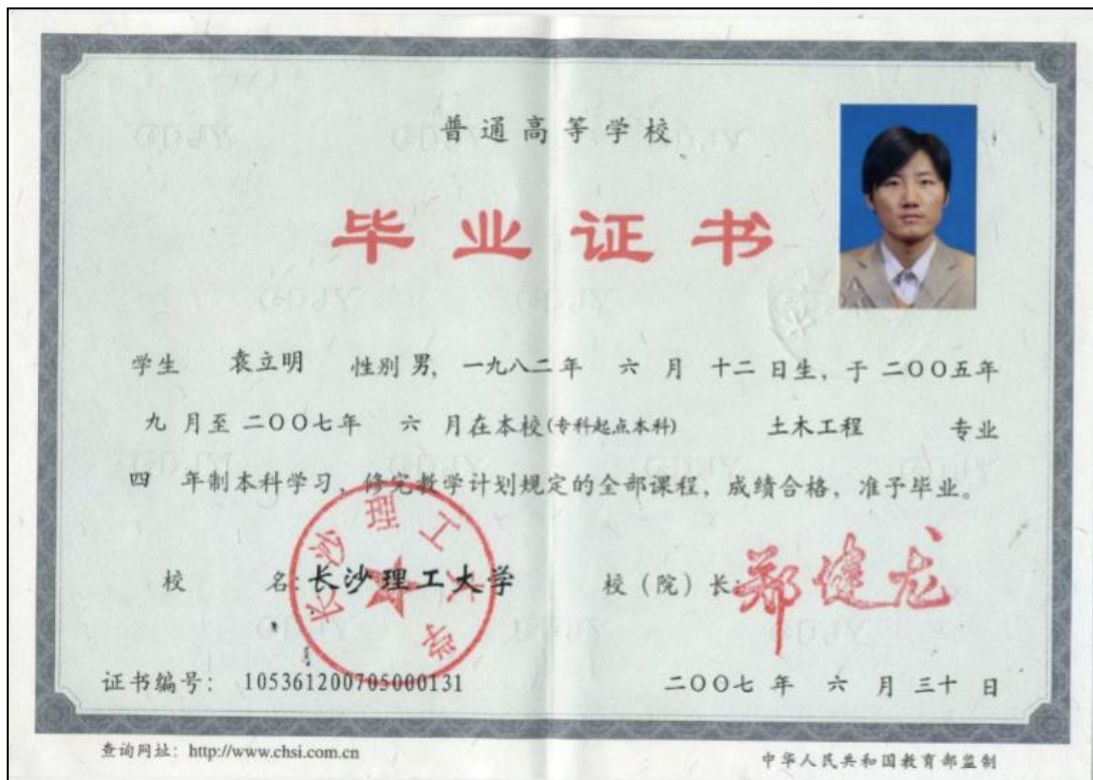 普通高等学校
毕业证书
学生 袁立明 性别 男, 一九八二年 六 月 十二 日生, 于 二〇〇五年
九 月至 二〇〇七年 六 月在本校(专科起点本科) 土木工程 专业
四 年制本科学习, 修完教学计划规定的全部课程, 成绩合格, 准予毕业。
长沙理工大学
校 名: 长沙理工大学 校(院)长: 郑健龙
证书编号: 105361200705000131 二〇〇七 年 六 月 三十 日
查询网址: http://www.chsi.com.cn 中华人民共和国教育部监制